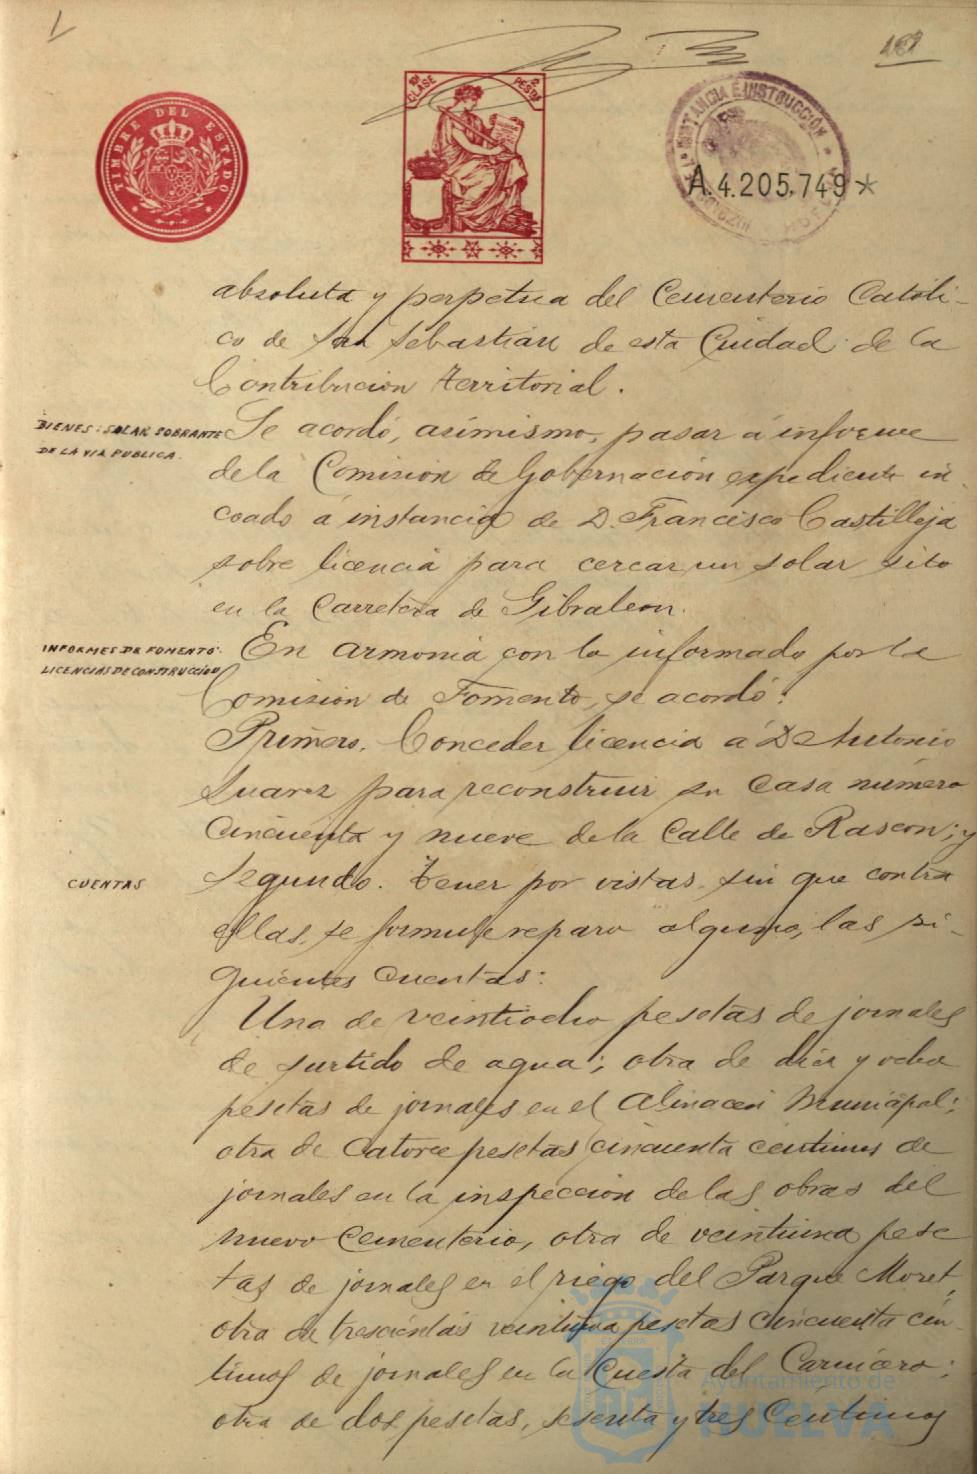 169
TIMBRE DEL ESTADO
10ª CLASE 2 PESTAS
INSTANCIA E INSTRUCCIÓN
A.4.205.749*
absoluta y perpetua del Cementerio Católi-
co de San Sebastián de esta Ciudad de la
Contribución territorial.
BIENES: SOLAR SOBRANTE
DE LA VIA PUBLICA.
Se acordó, asimismo, pasar á informe
de la Comisión de Gobernación expediente in-
coado á instancia de D. Francisco Castilleja
sobre licencia para cercar un solar sito
en la Carretera de Gibraleon.
INFORMES DE FOMENTO:
LICENCIAS DE CONSTRUCCION
En armonía con lo informado por la
Comisión de Fomento, se acordó:
Primero. Conceder licencia á D. Antonio
Suarez para reconstruir su casa número
cincuenta y nueve de la Calle de Rascon; y
CUENTAS
Segundo. Tener por vistas, sin que contra
ellas se formule reparo alguno, las si-
guientes cuentas:
Una de veintiocho pesetas de jornales
de surtido de agua; otra de diez y ocho
pesetas de jornales en el Almacen Municipal;
otra de catorce pesetas cincuenta centimos de
jornales en la inspección de las obras del
nuevo Cementerio, otra de veintiuna pese
tas de jornales en el riego del Parque Moret,
otra de trescientas veintiuna pesetas cincuenta cén-
timos de jornales en la Cuesta del Carnicero;
otra de dos pesetas, sesenta y tres centimos
Ayuntamiento de
HUELVA